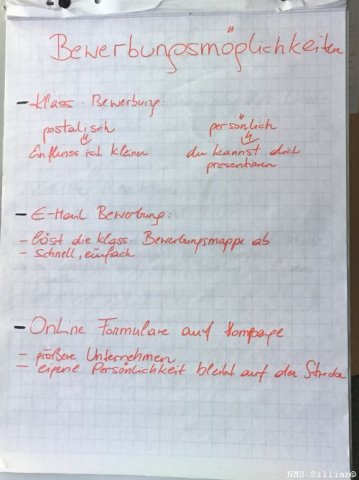 Bewerbungsmöglichkeiten
- Klass. Bewerbung:
postalisch persönlich
Einfluss ist kleiner du kannst dich
presentieren
- E-Mail Bewerbung:
- löst die klass. Bewerbungsmappe ab
- schnell, einfach
- Online Formulare auf Hompage
- größere Unternehmen
- eigene Persönlichkeit bleibt auf der Strecke
NMS Sillian©